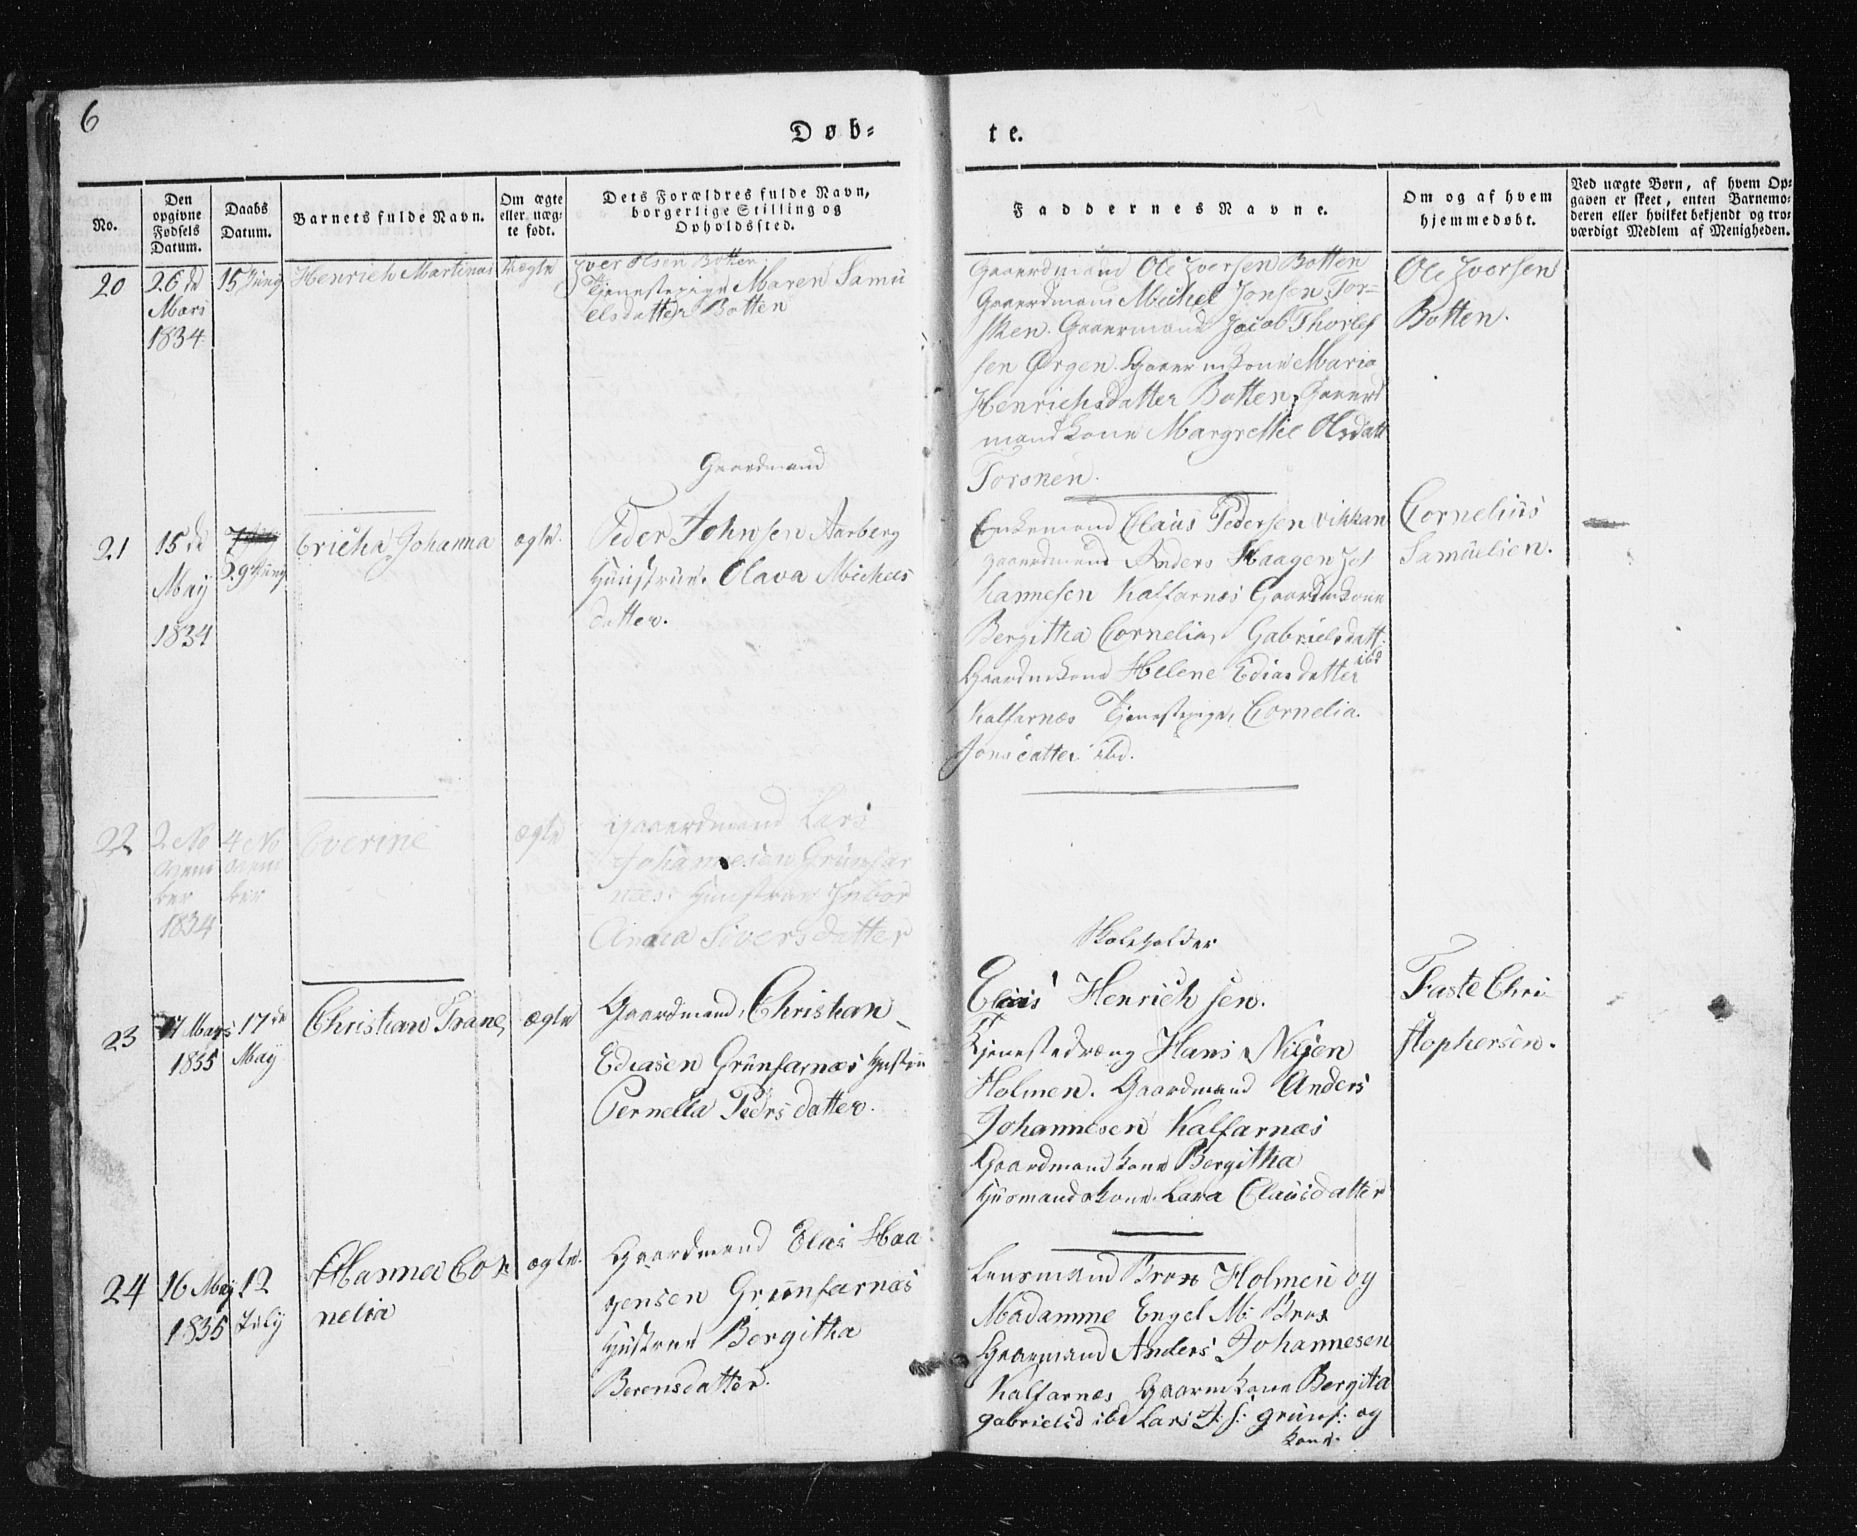 6
Døb-
te.
No.
Den opgivne Fødsels Datum.
Daabs Datum.
Barnets fulde Navn.
Om ægte eller uægte født.
Dets Forældres fulde Navn, borgerlige Stilling og Opholdssted.
Faddernes Navne.
Om og af hvem hjemmedøbt.
Ved uægte Børn, af hvem Opgaven er skeet, enten Barnemoderen eller hvilket bekjendt og troværdigt Medlem af Menigheden.
20
26de
Mars
1834
15 Juny
Henrich Martinus
Uægte
Iver Olsen Botten.
Tjenestepige Maren Samu
elsdatter Botten
Gaaerdmand Ole Iversen Botten
Gaaerdmand Michel Jonsen Tor=
sken. Gaaermand Jacob Thorlef
sen Ørgen. Gaaermkone Maria
Henrichsdatter Botten, Gaaerd
mand kone Margrethe Olsdatt
Torsken.
Ole Iversen
Botten.
21
15de
May
1834
29 Juny
Ericha Johanna
ægte.
Gaardmand
Peder Johnsen Aarberg
Hunstrue. Olava Michels
datter.
Enkemand Claus Pedersen vikkan
Gaaerdmand Anders Haagen Jo
hannesen Kalfarnæs Gaardmkone
Bergitha Cornelia, Gabrielsdatt.
ibd
Gaardmkone Helene Ediasdatter
Kalfarnæs Tjenestepige, Cornelia.
Jonsdatter ibd.
Cornelius
Samuelsen.
22
2 No
vem
ber
1834
4 No
vem
ber
Everine
ægte
Gaaerdmand Lars
Johannesen Grünfar
næs. Hunstrue Inbor
Anna Siversdatter
23
17 Mays
1835
17de
May
Christian Trane
ægte
Gaardmand, Christian
Ediasen Grünfarnæs Hustru
Pernella Pedrsdatter.
Skoleholder
Elias Henrichsen.
Tjenestedreng Hans Nilsen
Holmen. Gaardmand Anders
Johannesen Kalfarnæs
Gaardmand kone Bergitha
Husmandskone. Lava Clausdatter
Faste Chri
stophersen.
24
16 May
1835
12
July
Hanna Cor
nelia
ægte.
Gaardmand Elias Haa
gensen Grünfarnæs
Hustrue Bergitha
Berensdatter.
Lensmand Brox Holmen og
Madamme Engel M. Brox
Gaarmand Anders Johannesen
Kalfarnæs Gaarmkone Bergita
gabrielsd ibd Lars J: s: grünf: og
kone.